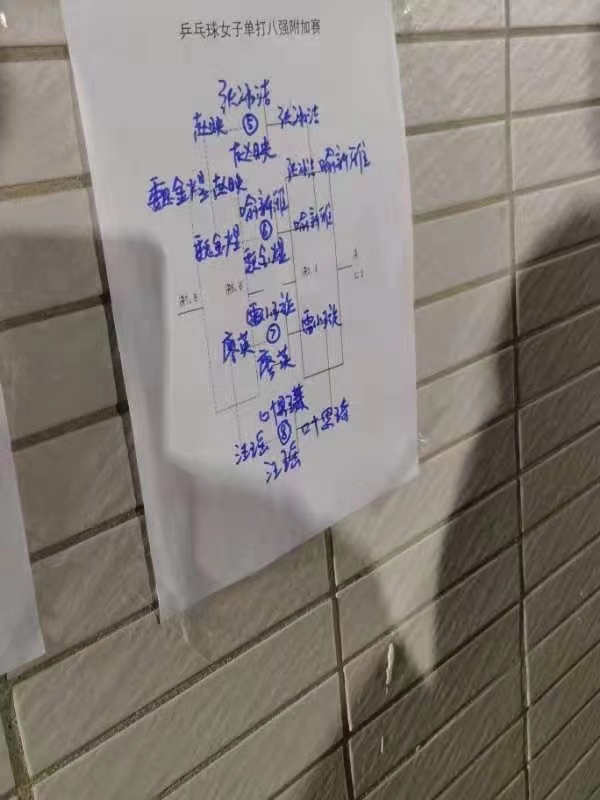 乒乓球女子单打八强附加赛
张冰洁
赵映 ⑤ 张冰洁
赵映
张冰洁 喻新雅
甄金煜 赵映
喻新雅
⑥ 喻新雅
甄金煜
甄金煜
雷小璇
⑦ 雷小璇
廖英
廖英
叶思
⑧ 叶思琦
汪瑶
汪瑶